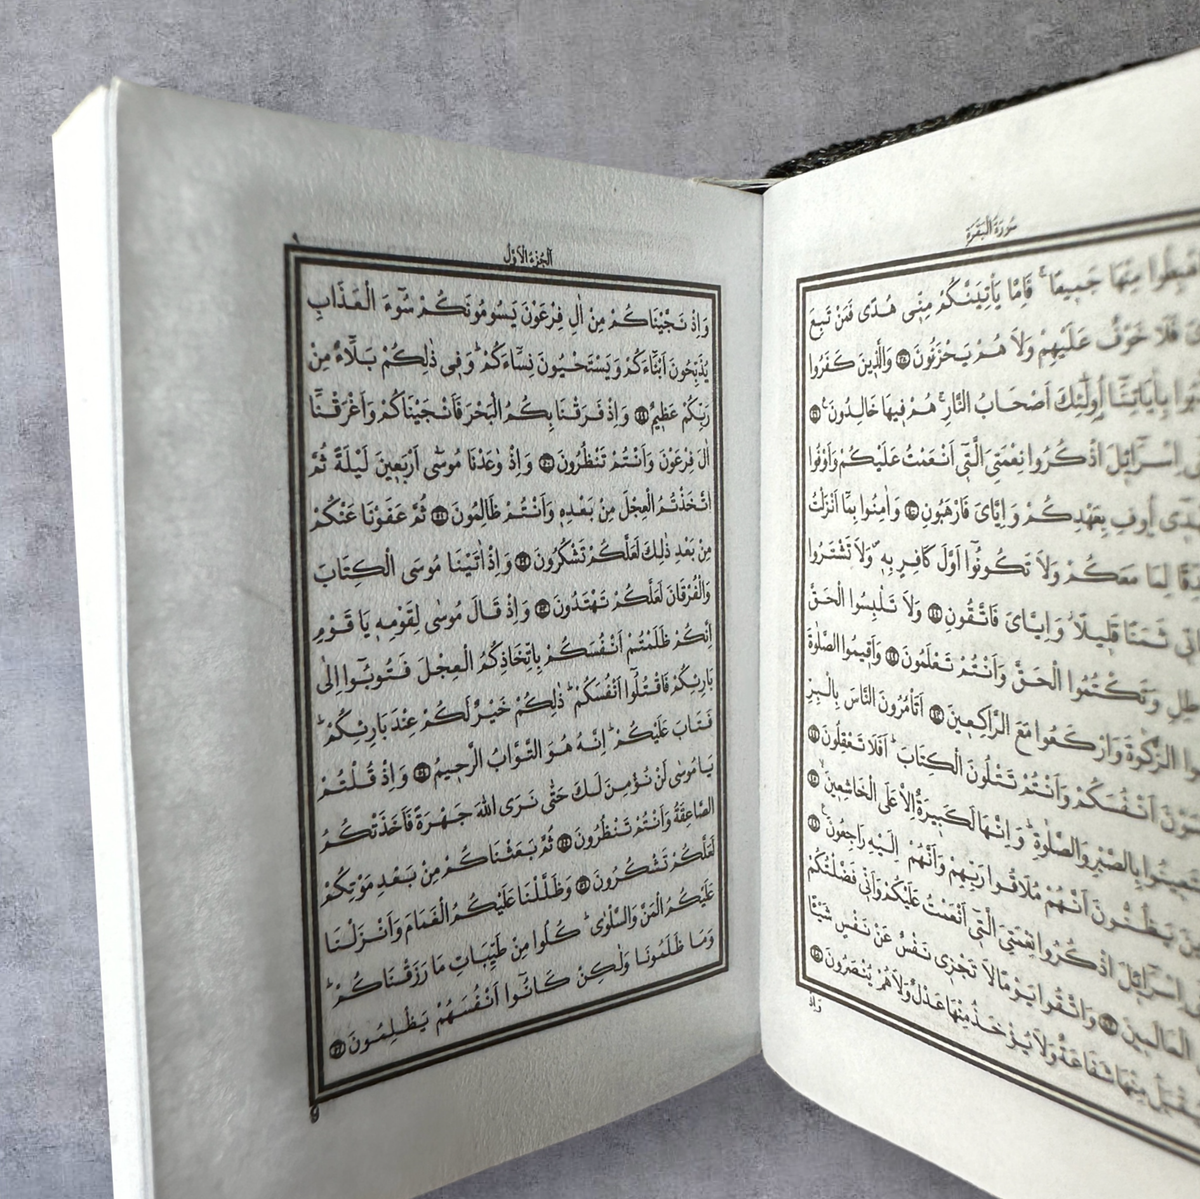 سُورَةُ الْبَقَرَةِ
مِنْهَا جَمِيعًا فَاِمَّا يَأْتِيَنَّكُمْ مِنّ۪ي هُدًى فَمَنْ تَبِعَ
فَلَا خَوْفٌ عَلَيْهِمْ وَلَا هُمْ يَحْزَنُونَ ٣٨ وَالَّذ۪ينَ كَفَرُوا
بِاٰيَاتِنَٓا اُو۬لٰٓئِكَ اَصْحَابُ النَّارِ هُمْ ف۪يهَا خَالِدُونَ ٣٩
اِسْرَٓائ۪لَ اذْكُرُوا نِعْمَتِيَ الَّت۪ٓي اَنْعَمْتُ عَلَيْكُمْ وَاَوْفُوا
اُو۫فِ بِعَهْدِكُمْ وَاِيَّايَ فَارْهَبُونِ ٤٠ وَاٰمِنُوا بِمَٓا اَنْزَلْتُ
لِمَا مَعَكُمْ وَلَا تَكُونُٓوا اَوَّلَ كَافِرٍ بِه۪ وَلَا تَشْتَرُوا
ثَمَنًا قَل۪يلًا وَاِيَّايَ فَاتَّقُونِ ٤١ وَلَا تَلْبِسُوا الْحَقَّ
وَتَكْتُمُوا الْحَقَّ وَاَنْتُمْ تَعْلَمُونَ ٤٢ وَاَق۪يمُوا الصَّلٰوةَ
الزَّكٰوةَ وَارْكَعُوا مَعَ الرَّاكِع۪ينَ ٤٣ اَتَأْمُرُونَ النَّاسَ بِالْبِرِّ
اَنْفُسَكُمْ وَاَنْتُمْ تَتْلُونَ الْكِتَابَ اَفَلَا تَعْقِلُونَ ٤٤
بِالصَّبْرِ وَالصَّلٰوةِ وَاِنَّهَا لَكَب۪يرَةٌ اِلَّا عَلَى الْخَاشِع۪ينَ ٤٥
يَظُنُّونَ اَنَّهُمْ مُلَاقُوا رَبِّهِمْ وَاَنَّهُمْ اِلَيْهِ رَاجِعُونَ ٤٦
اِسْرَٓائ۪لَ اذْكُرُوا نِعْمَتِيَ الَّت۪ٓي اَنْعَمْتُ عَلَيْكُمْ وَاَنّ۪ي فَضَّلْتُكُمْ
الْعَالَم۪ينَ ٤٧ وَاتَّقُوا يَوْمًا لَا تَجْز۪ي نَفْسٌ عَنْ نَفْسٍ شَيْئًا
مِنْهَا شَفَاعَةٌ وَلَا يُؤْخَذُ مِنْهَا عَدْلٌ وَلَا هُمْ يُنْصَرُونَ ٤٨
وَاِذْ
اَلْجُزْءُ الْاَوَّلُ
وَاِذْ نَجَّيْنَاكُمْ مِنْ اٰلِ فِرْعَوْنَ يَسُومُونَكُمْ سُٓوءَ الْعَذَابِ
يُذَبِّحُونَ اَبْنَٓاءَكُمْ وَيَسْتَحْيُونَ نِسَٓاءَكُمْ وَف۪ي ذٰلِكُمْ بَلَٓاءٌ مِنْ
رَبِّكُمْ عَظ۪يمٌ ٤٩ وَاِذْ فَرَقْنَا بِكُمُ الْبَحْرَ فَاَنْجَيْنَاكُمْ وَاَغْرَقْنَٓا
اٰلَ فِرْعَوْنَ وَاَنْتُمْ تَنْظُرُونَ ٥٠ وَاِذْ وٰعَدْنَا مُوسٰٓى اَرْبَع۪ينَ لَيْلَةً ثُمَّ
اتَّخَذْتُمُ الْعِجْلَ مِنْ بَعْدِه۪ وَاَنْتُمْ ظَالِمُونَ ٥١ ثُمَّ عَفَوْنَا عَنْكُمْ
مِنْ بَعْدِ ذٰلِكَ لَعَلَّكُمْ تَشْكُرُونَ ٥٢ وَاِذْ اٰتَيْنَا مُوسَى الْكِتَابَ
وَالْفُرْقَانَ لَعَلَّكُمْ تَهْتَدُونَ ٥٣ وَاِذْ قَالَ مُوسٰى لِقَوْمِه۪ يَا قَوْمِ
اِنَّكُمْ ظَلَمْتُمْ اَنْفُسَكُمْ بِاتِّخَاذِكُمُ الْعِجْلَ فَتُوبُٓوا اِلٰى
بَارِئِكُمْ فَاقْتُلُٓوا اَنْفُسَكُمْ ذٰلِكُمْ خَيْرٌ لَكُمْ عِنْدَ بَارِئِكُمْ
فَتَابَ عَلَيْكُمْ اِنَّهُ هُوَ التَّوَّابُ الرَّح۪يمُ ٥٤ وَاِذْ قُلْتُمْ
يَا مُوسٰى لَنْ نُؤْمِنَ لَكَ حَتّٰى نَرَى اللّٰهَ جَهْرَةً فَاَخَذَتْكُمُ
الصَّاعِقَةُ وَاَنْتُمْ تَنْظُرُونَ ٥٥ ثُمَّ بَعَثْنَاكُمْ مِنْ بَعْدِ مَوْتِكُمْ
لَعَلَّكُمْ تَشْكُرُونَ ٥٦ وَظَلَّلْنَا عَلَيْكُمُ الْغَمَامَ وَاَنْزَلْنَا
عَلَيْكُمُ الْمَنَّ وَالسَّلْوٰى كُلُوا مِنْ طَيِّبَاتِ مَا رَزَقْنَاكُمْ
وَمَا ظَلَمُونَا وَلٰكِنْ كَانُٓوا اَنْفُسَهُمْ يَظْلِمُونَ ٥٧